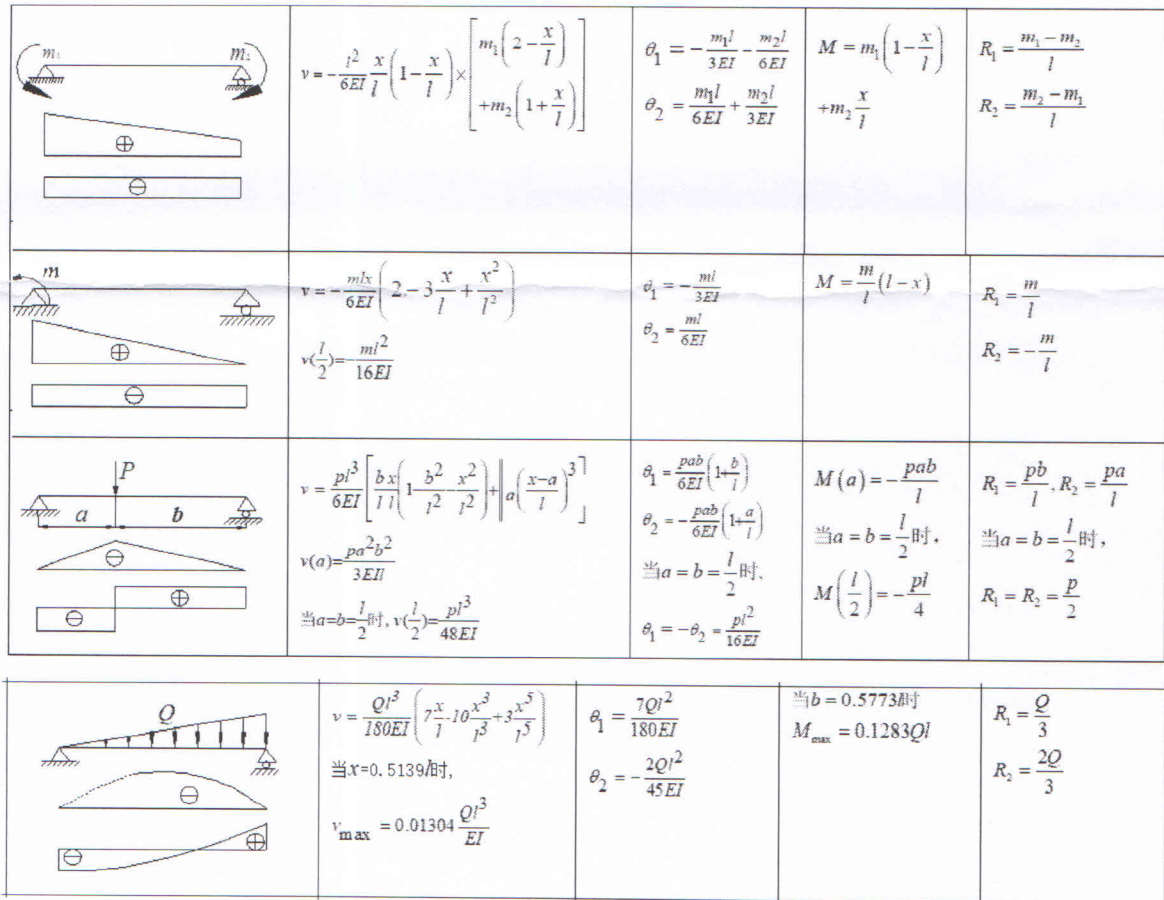 m₁ m₂
v = -\frac{l^2}{6EI}\frac{x}{l}\left(1-\frac{x}{l}\right)×\left[m_1\left(2-\frac{x}{l}\right)+m_2\left(1+\frac{x}{l}\right)\right]
θ_1 = -\frac{m_1l}{3EI}-\frac{m_2l}{6EI}
θ_2 = \frac{m_1l}{6EI}+\frac{m_2l}{3EI}
M = m_1\left(1-\frac{x}{l}\right)
+m_2\frac{x}{l}
R_1 = \frac{m_1-m_2}{l}
R_2 = \frac{m_2-m_1}{l}
m
v = -\frac{mlx}{6EI}\left(2-3\frac{x}{l}+\frac{x^2}{l^2}\right)
v(\frac{l}{2})=-\frac{ml^2}{16EI}
θ_1 = -\frac{ml}{3EI}
θ_2 = \frac{ml}{6EI}
M = \frac{m}{l}(l-x)
R_1 = \frac{m}{l}
R_2 = -\frac{m}{l}
P
a b
v = \frac{pl^3}{6EI}\left[\frac{b}{l}\frac{x}{l}\left(1-\frac{b^2}{l^2}-\frac{x^2}{l^2}\right)+\|_a\left(\frac{x-a}{l}\right)^3\right]
v(a)=\frac{pa^2b^2}{3EIl}
当a=b=\frac{l}{2}时, v(\frac{l}{2})=\frac{pl^3}{48EI}
θ_1 = \frac{pab}{6EI}\left(1+\frac{b}{l}\right)
θ_2 = -\frac{pab}{6EI}\left(1+\frac{a}{l}\right)
当a = b = \frac{l}{2}时,
θ_1 = -θ_2 = \frac{pl^2}{16EI}
M(a) = -\frac{pab}{l}
当a = b = \frac{l}{2}时,
M\left(\frac{l}{2}\right) = -\frac{pl}{4}
R_1 = \frac{pb}{l}, R_2 = \frac{pa}{l}
当a = b = \frac{l}{2}时,
R_1 = R_2 = \frac{p}{2}
Q
v = \frac{Ql^3}{180EI}\left(7\frac{x}{l}-10\frac{x^3}{l^3}+3\frac{x^5}{l^5}\right)
当x=0.5139l时,
v_{max} = 0.01304\frac{Ql^3}{EI}
θ_1 = \frac{7Ql^2}{180EI}
θ_2 = -\frac{2Ql^2}{45EI}
当b = 0.5773l时
M_{max} = 0.1283Ql
R_1 = \frac{Q}{3}
R_2 = \frac{2Q}{3}